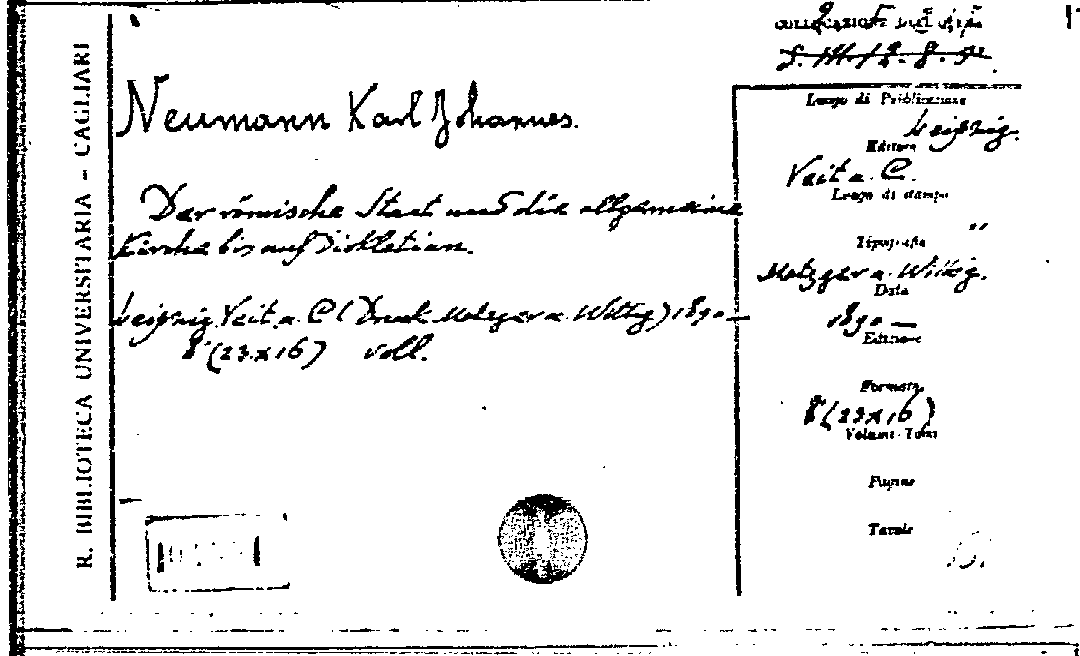 R. BIBLIOTECA UNIVERSITARIA - CAGLIARI
COLLOCAZIONE
Neumann Karl Johannes.
Der römische Staat und die allgemeine
Kirche bis auf Diokletian.
Leipzig Veit u. C (Druck Metzger u. Wittig) 1890—
8° (23x16) voll.
Luogo di Pubblicazione
Leipzig.
Editore
Veit u. C.
Luogo di stampa
"
Tipografia
Metzger u. Wittig.
Data
1890—
Edizione
Formato
8° (23x16)
Volumi - Tomi
Pagine
Tavole